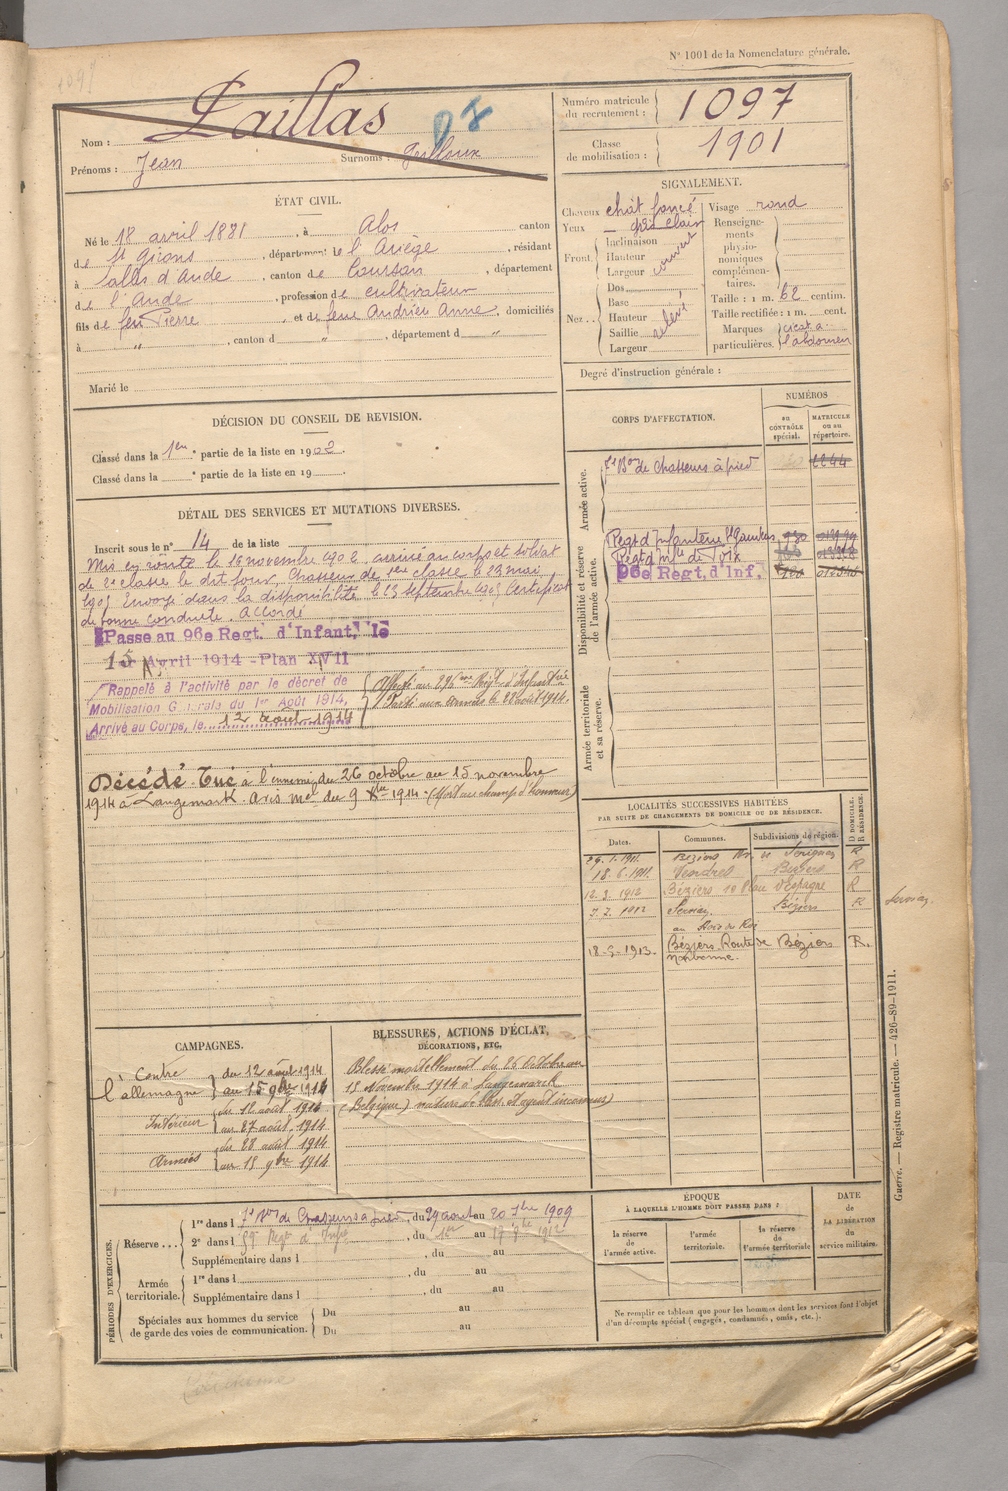 N° 1001 de la Nomenclature générale.
1097
Nom : Laillas
Prénoms : Jean Surnoms :
Numéro matricule du recrutement : 1097
Classe de mobilisation : 1901
ÉTAT CIVIL.
Né le 18 avril 1881, à Alos canton
de St Girons, département de l'Ariège, résidant
à Salles d'Aude, canton de Coursan, département
de l'Aude, profession de cultivateur
fils de feu Pierre et de feue Andrieu Anne, domiciliés
à " , canton d " , département d "
Marié le
SIGNALEMENT.
Cheveux chât foncé
Yeux gris clair
Front. Inclinaison
Hauteur
Largeur couvert
Nez. Dos
Base
Hauteur
Saillie relevé
Largeur
Visage rond
Renseignements physionomiques complémentaires.
Taille : 1 m. 62 centim.
Taille rectifiée : 1 m. cent.
Marques particulières. cicat. à l'abdomen
Degré d'instruction générale :
DÉCISION DU CONSEIL DE REVISION.
Classé dans la 1ere partie de la liste en 1902.
Classé dans la e partie de la liste en 19
DÉTAIL DES SERVICES ET MUTATIONS DIVERSES.
Inscrit sous le n° 14 de la liste
Mis en route le 16 novembre 1902, arrivé au corps et soldat
de 2e classe le dit jour, Chasseur de 1ere classe le 23 mai
1905 Envoyé dans la disponibilité le 23 septembre 1905 Certificat
de bonne conduite accordé
Passé au 96e Regt. d'Infant. le
15 Avril 1914 - Plan XVII
Rappelé à l'activité par le décret de
Mobilisation Générale du 1er Août 1914,
Arrivé au Corps, le 12 août 1914
Affecté au 296eme Regt d'Infanterie
Parti aux armées le 28 août 1914.
Décédé. Tué à l'ennemi du 26 octobre au 15 novembre
1914 à Langemark. Avis mel du 9 Xbre 1914 - (Mort au champ d'honneur)
CORPS D'AFFECTATION.
NUMÉROS
au CONTRÔLE spécial.
MATRICULE ou au répertoire.
Armée active.
7e Bon de Chasseurs à pied 2244
Disponibilité et réserve de l'armée active.
Regt d'Infanterie
Regt d'Infie de Foix
96e Regt. d'Inf.
Armée territoriale et sa réserve.
LOCALITÉS SUCCESSIVES HABITÉES
PAR SUITE DE CHANGEMENTS DE DOMICILE OU DE RÉSIDENCE.
Dates. Communes. Subdivisions de région. D DOMICILE. R RÉSIDENCE.
29.1.1911. Béziers R
18.6.1911. Vendres Béziers R
12.3.1912 Béziers R
3.2.1912 Béziers R
18-5-1913. Béziers Route de Narbonne. Béziers R.
CAMPAGNES.
Contre l'allemagne du 12 août 1914
au 15 9bre 1914
Intérieur du 12 août 1914
au 27 août 1914
Armées du 28 août 1914
au 15 9bre 1914
BLESSURES, ACTIONS D'ÉCLAT, DÉCORATIONS, ETC.
Blessé mortellement du 26 Octobre au
15 Novembre 1914 à Langemarck
(Belgique)
PÉRIODES D'EXERCICES.
Réserve ... 1re dans l 7e Bon de Chasseurs à pied, du 29 août au 20 7bre 1909
2e dans l , du 1er au 17 9bre 1912
Supplémentaire dans l , du au
Armée territoriale. 1re dans l , du au
Supplémentaire dans l , du au
Spéciales aux hommes du service de garde des voies de communication. Du au
Du au
ÉPOQUE
À LAQUELLE L'HOMME DOIT PASSER DANS :
la réserve de l'armée active.
l'armée territoriale.
la réserve de l'armée territoriale
DATE de LA LIBÉRATION du service militaire.
Ne remplir ce tableau que pour les hommes dont les services font l'objet
d'un décompte spécial (engagés, condamnés, omis, etc.).
Guerre. — Registre matricule. — 426-89-1911.